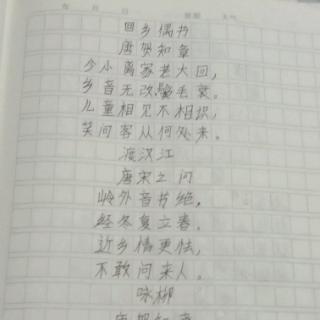 回乡偶书
唐贺知章
少小离家老大回，
乡音无改鬓毛衰。
儿童相见不相识，
笑问客从何处来。
渡汉江
唐宋之问
岭外音书绝，
经冬复立春。
近乡情更怯，
不敢问来人。
咏柳